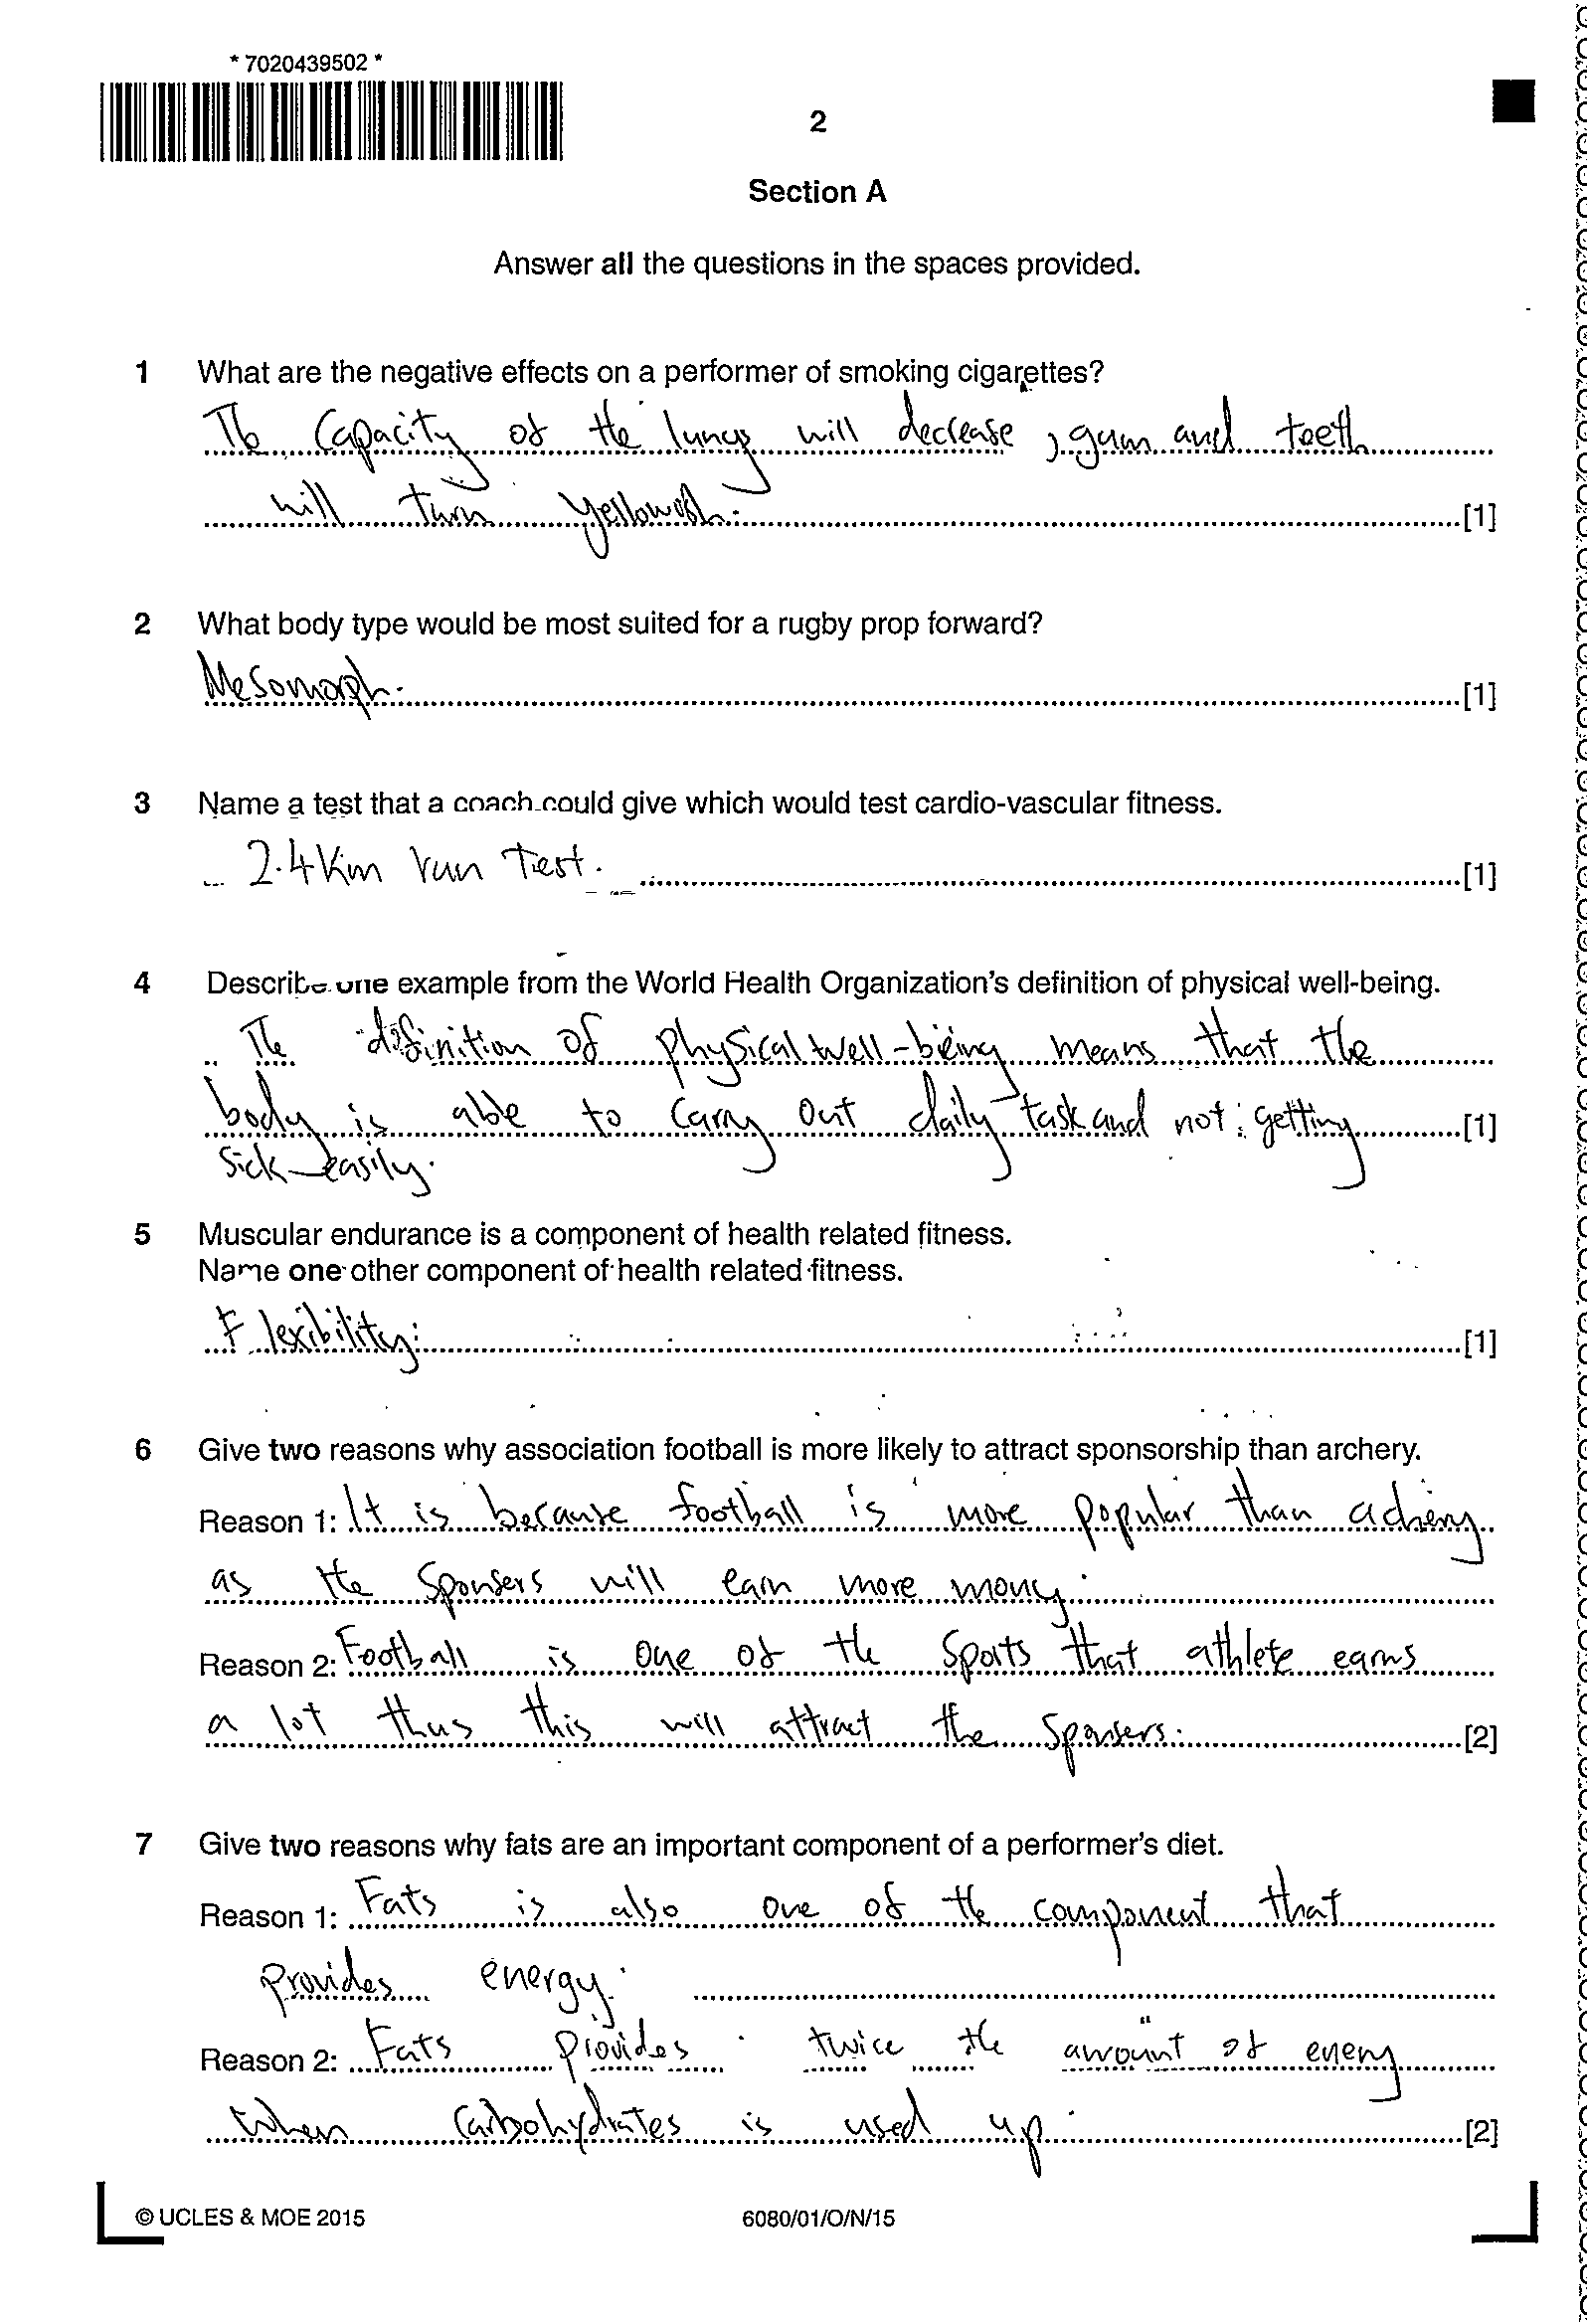 *7020439502*
2
Section A
Answer all the questions in the spaces provided.
1 What are the negative effects on a performer of smoking cigarettes?
The Capacity of the lungs will decrease, gum and teeth
will turn yellowish.
[1]
2 What body type would be most suited for a rugby prop forward?
Mesomorph.
[1]
3 Name a test that a coach could give which would test cardio-vascular fitness.
2.4km run test.
[1]
4 Describe one example from the World Health Organization's definition of physical well-being.
The definition of physical well-being means that the
body is able to carry out daily task and not getting [1]
sick easily.
5 Muscular endurance is a component of health related fitness.
Name one other component of health related fitness.
Flexibility.
[1]
6 Give two reasons why association football is more likely to attract sponsorship than archery.
Reason 1: It is because football is more popular than achery
as the sponsers will earn more money.
Reason 2: Football is one of the sports that athlete earns
a lot thus this will attract the sponsers. [2]
7 Give two reasons why fats are an important component of a performer's diet.
Reason 1: Fats is also one of the component that
provides energy.
Reason 2: Fats provides twice the amount of enery
when carbohydrates is used up. [2]
© UCLES & MOE 2015
6080/01/O/N/15